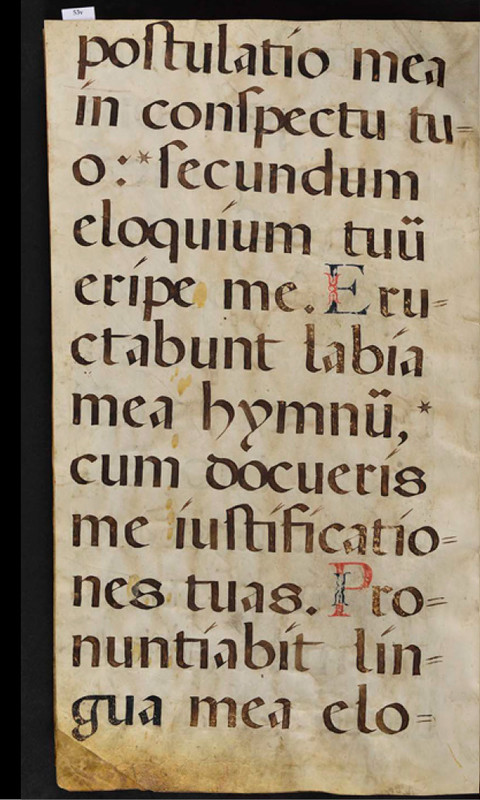 53v
poſtulatio mea
in conſpectu tu=
o:* ſecundum
eloquium tuū
eripe me. Eru=
ctabunt labia
mea hymnū,*
cum docueris
me iuſtificatio=
nes tuas. Pro=
nuntiabit lin=
gua mea elo=